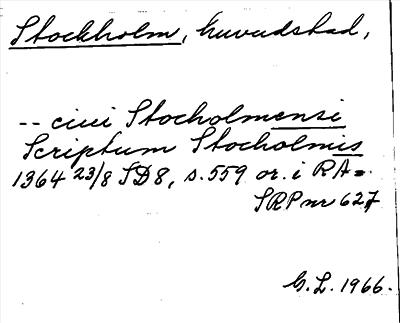 Stockholm, huvudstad,
-- civi Stocholmensi
Scriptum Stocholmis
1364 23/8 SD8, s. 559 or. i RA =
SRP nr 627
G. L. 1966.